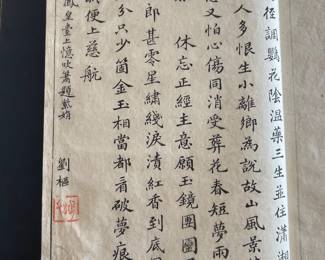 徑調鸚花陰溫藥三生並住瀟湘
人多恨生小離鄉為說故山風景
憶又怕心傷同消受葬花春短夢雨
休忘正經主意願玉鏡團圞
郎甚零星繡綫淚漬紅香到底
分只少箇金玉相當都看破夢痕
便上慈航
鳳皇臺上憶吹簫題紫鵑
劉樞